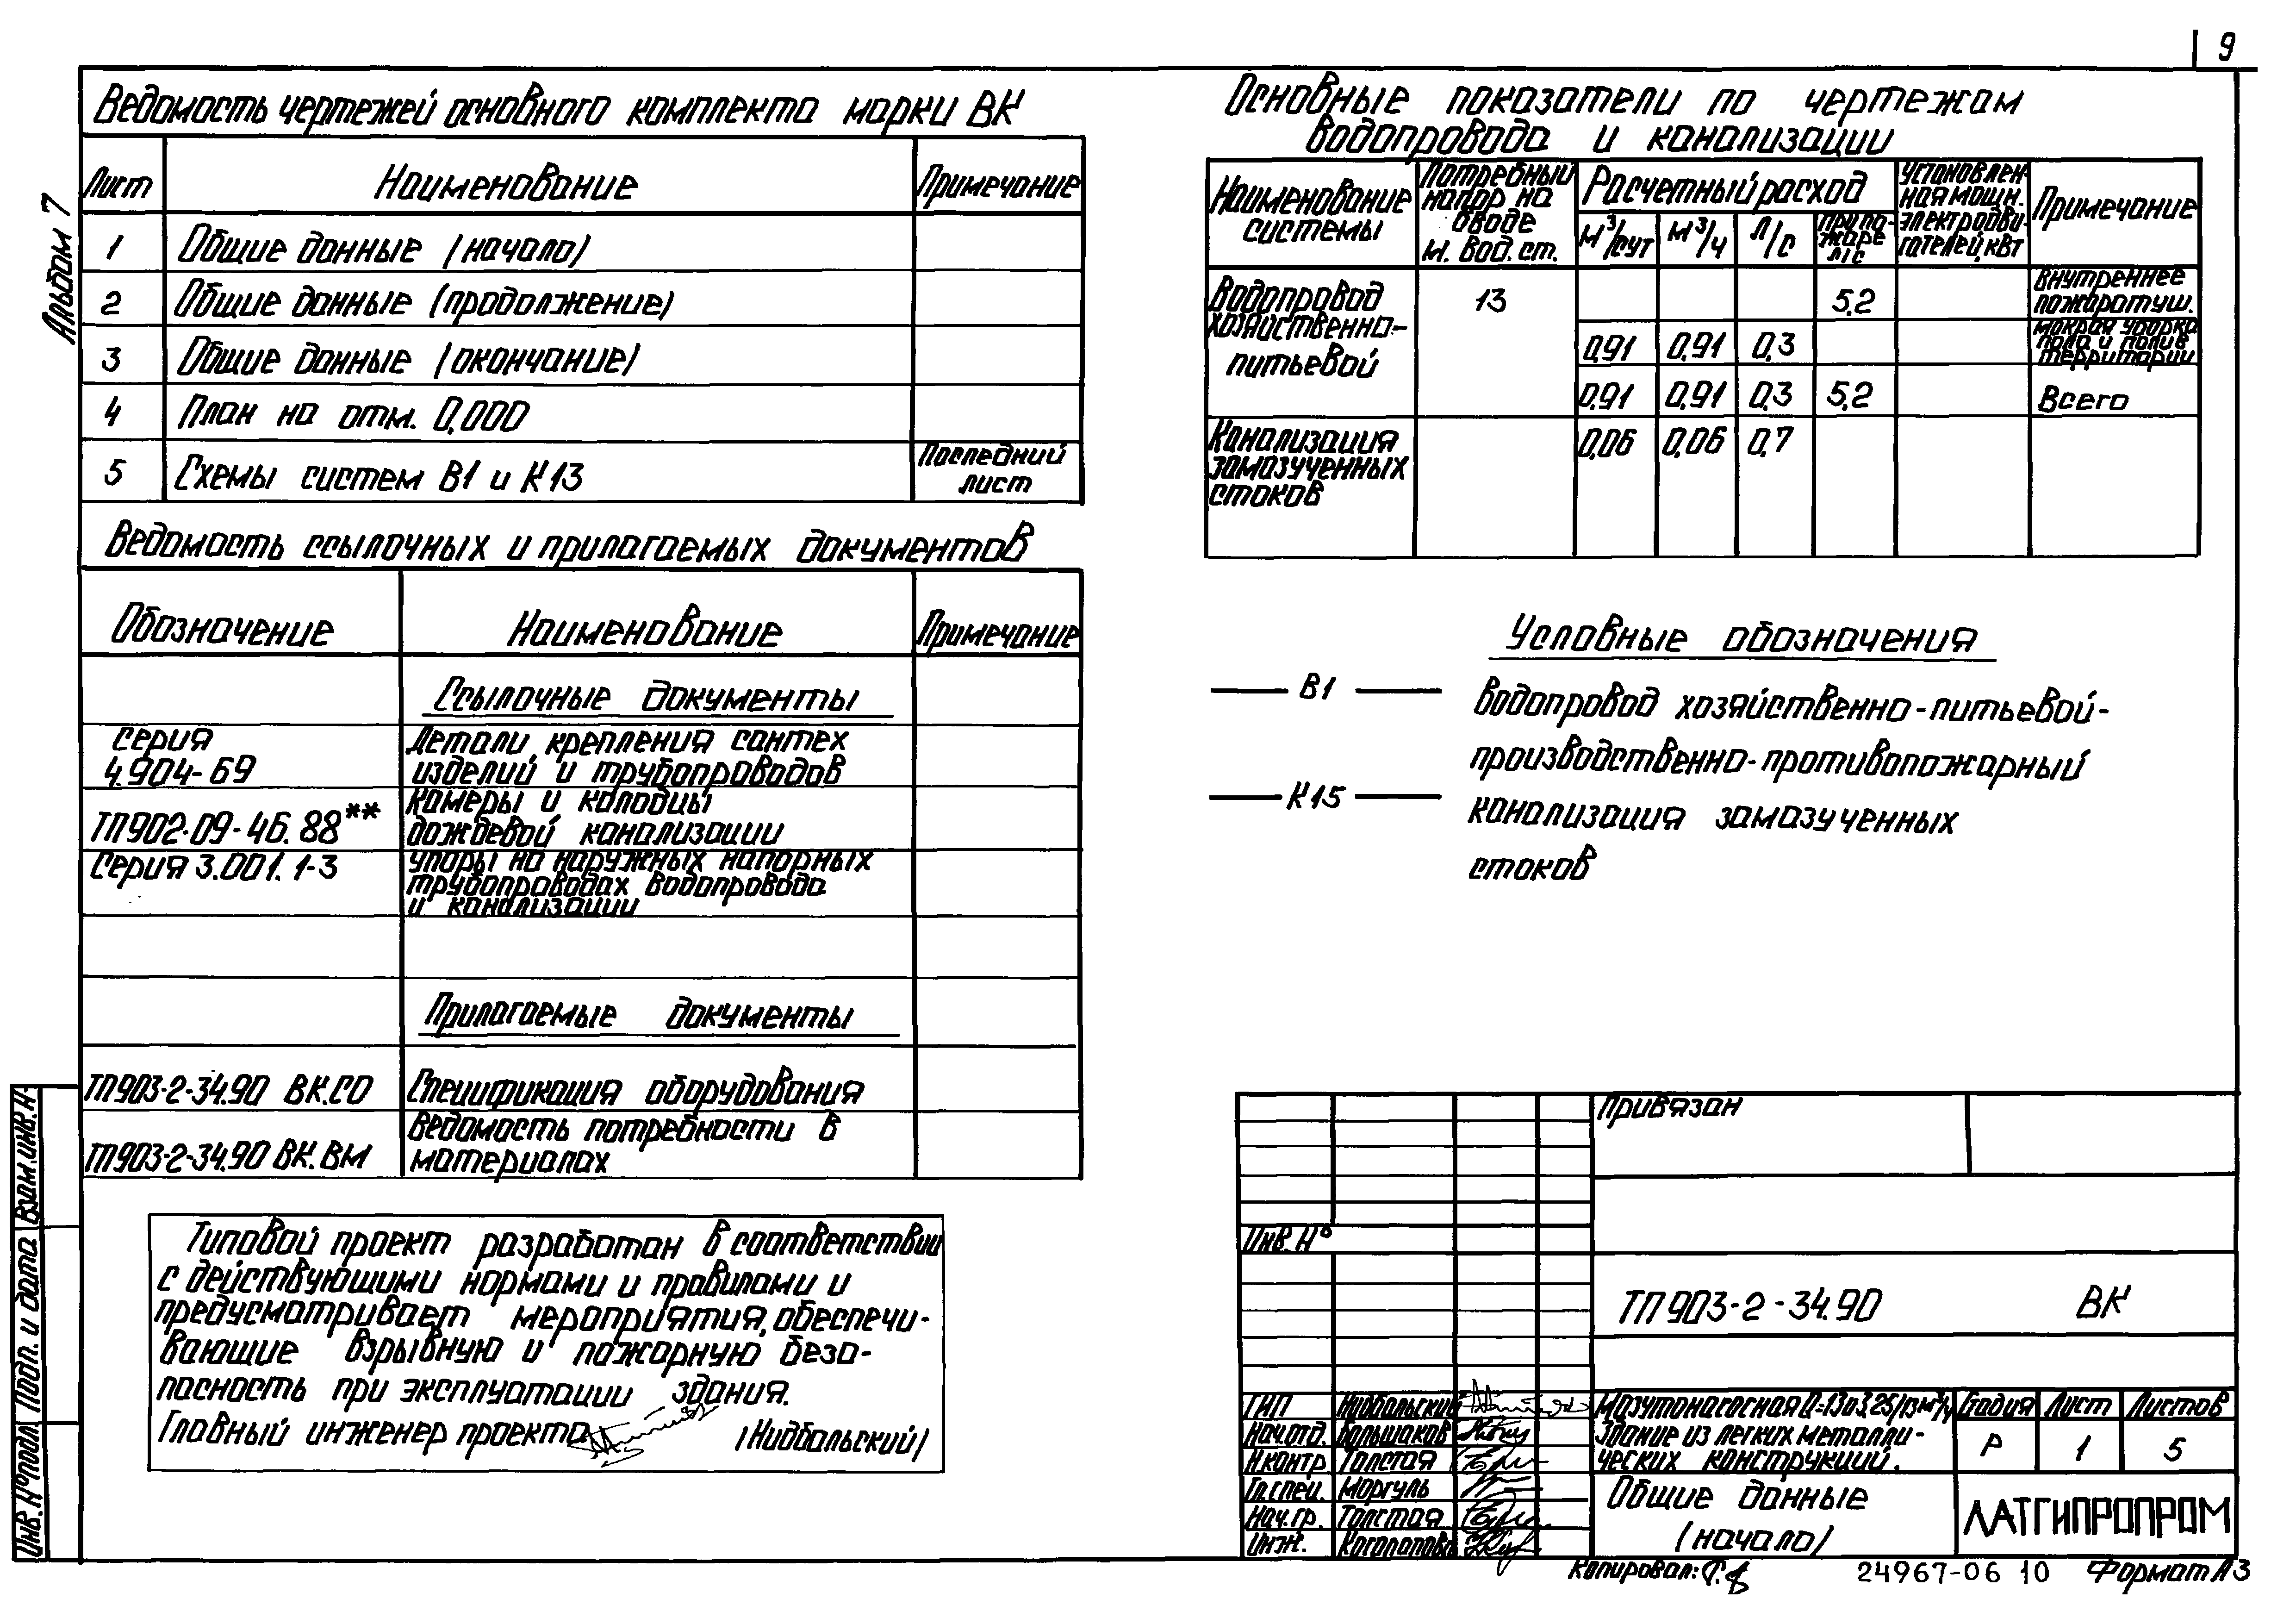 9
Альбом 7
Ведомость чертежей основного комплекта марки ВК
Лист Наименование Примечание
1 Общие данные (начало)
2 Общие данные (продолжение)
3 Общие данные (окончание)
4 План на отм. 0,000
5 Схемы систем В1 и К13 Последний
лист
Ведомость ссылочных и прилагаемых документов
Обозначение Наименование Примечание
Ссылочные документы
Серия
4.904-69
Детали крепления сантех
изделий и трубопроводов
ТП902-09-46.88**
Камеры и колодцы
дождевой канализации
Серия 3.001.1-3
упоры на наружных напорных
трубопроводах водопровода
и канализации
Прилагаемые документы
ТП903-2-34.90 ВК.СО Спецификация оборудования
ТП903-2-34.90 ВК.ВМ
Ведомость потребности в
материалах
Типовой проект разработан в соответствии
с действующими нормами и правилами и
предусматривает мероприятия, обеспечи-
вающие взрывную и пожарную безо-
пасность при эксплуатации здания.
Главный инженер проекта (Нидбальский)
Основные показатели по чертежам
водопровода и канализации
Наименование
системы
Потребный
напор на
вводе
м. вод. ст.
Расчетный расход
м³/сут м³/ч л/с
При по-
жаре
л/с
Установлен-
ная мощн.
электродви-
гателей, кВт
Примечание
Водопровод
хозяйственно-
питьевой
13 5,2
Внутреннее
пожаротуш.
0,91 0,91 0,3
мокрая уборка
пола и полив
территории
0,91 0,91 0,3 5,2 Всего
Канализация
замазученных
стоков
0,06 0,06 0,7
Условные обозначения
В1 водопровод хозяйственно-питьевой-
производственно-противопожарный
К15 канализация замазученных
стоков
Привязан
Инв. №
ТП903-2-34.90 ВК
ГИП Нидбальский
Нач.отд. Большаков
Н.контр Толстая
Гл.спец. Моргуль
Нач.гр. Толстая
Инж.
Здание из легких металли-
ческих конструкций.
Стадия Лист Листов
Р 1 5
Общие данные
(начало)
ЛАТГИПРОПРОМ
Копировал:
24967-06 10
Формат А3
Инв. № подл. Подп. и дата Взам.инв.№